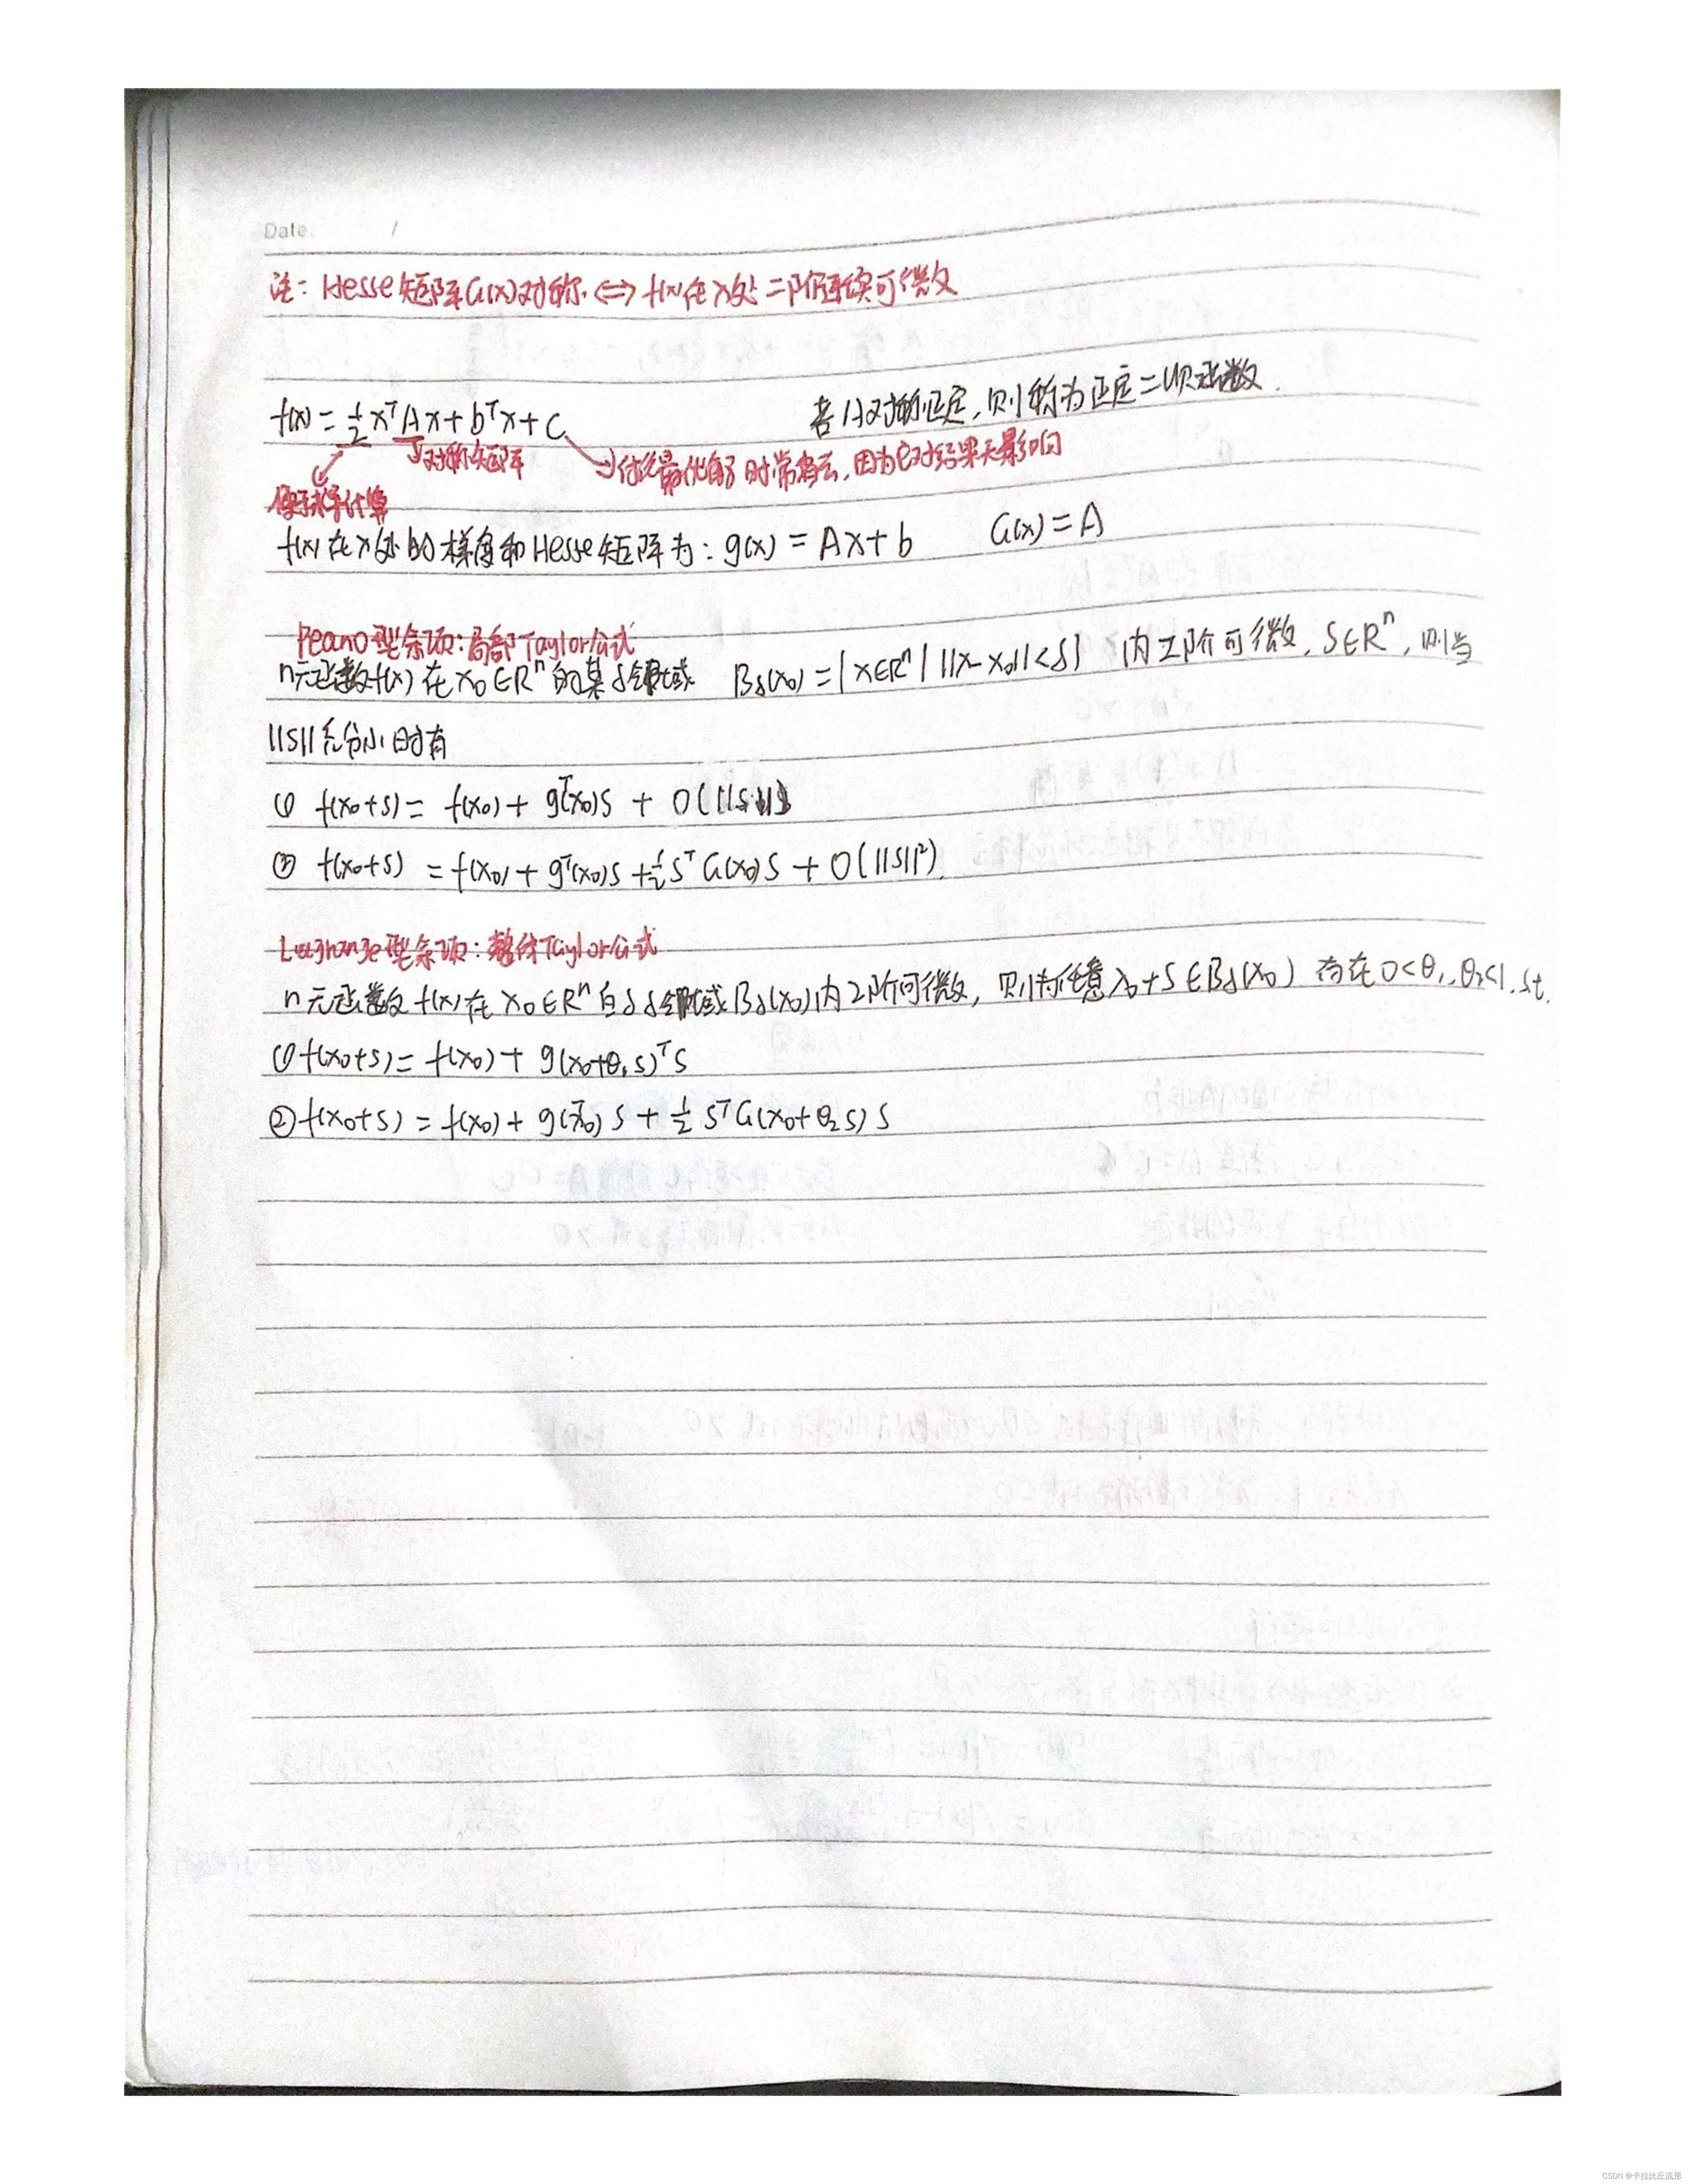 Date: /
注: Hesse矩阵G(x)对称 ⟺ f(x)在x处二阶连续可微
f(x) = ½xᵀAx + bᵀx + c 若A对称正定,则称为正定二次函数.
对称矩阵 →讨论最优解时常省去,因为它对结果无影响
便于求导计算
f(x)在x处的梯度和Hesse矩阵为: g(x) = Ax+b G(x) = A
Peano型余项:局部Taylor公式
n元函数f(x)在x₀∈Rⁿ的某δ邻域 Bδ(x₀) = {x∈Rⁿ | ||x-x₀||<δ} 内2阶可微, S∈Rⁿ, 则当
||S||充分小时有
① f(x₀+s) = f(x₀) + gᵀ(x₀)S + O(||S||)
② f(x₀+s) = f(x₀) + gᵀ(x₀)S + ½SᵀG(x₀)S + O(||S||²).
Lagrange型余项:整体Taylor公式
n元函数f(x)在x₀∈Rⁿ的δ邻域Bδ(x₀)内2阶可微, 则对任意x₀+S∈Bδ(x₀) 存在0<θ₁,θ₂<1, st.
① f(x₀+s) = f(x₀) + g(x₀+θ₁s)ᵀS
② f(x₀+s) = f(x₀) + gᵀ(x₀)S + ½SᵀG(x₀+θ₂s)S
CSDN @卡拉比丘流形